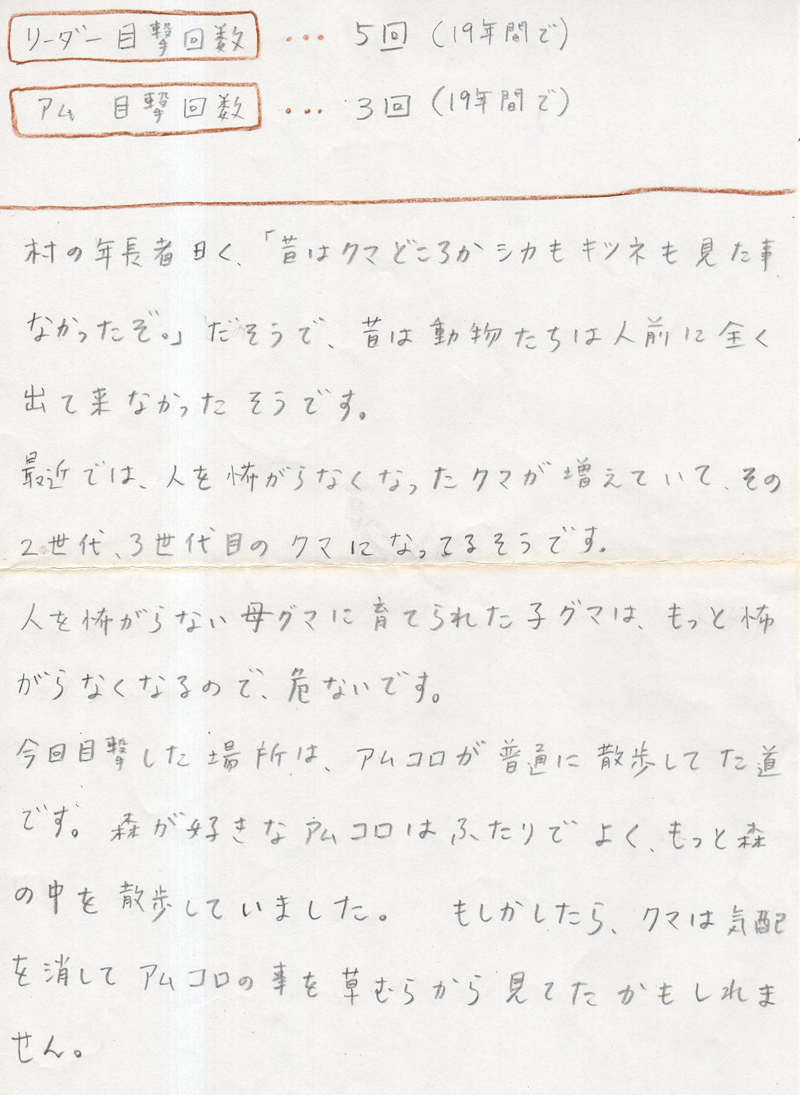 リーダー 目撃回数 ・・・ 5回 (19年間で)
アム 目撃回数 ・・・ 3回 (19年間で)
村の年長者曰く、「昔はクマどころかシカもキツネも見た事
なかったぞ。」だそうで、昔は動物たちは人前に全く
出て来なかったそうです。
最近では、人を怖がらなくなったクマが増えていて、その
2世代、3世代目のクマになってるそうです。
人を怖がらない母グマに育てられた子グマは、もっと怖
がらなくなるので、危ないです。
今回目撃した場所は、アムコロが普通に散歩してた道
です。森が好きなアムコロはふたりでよく、もっと森
の中を散歩していました。 もしかしたら、クマは気配
を消してアムコロの事を草むらから見てたかもしれま
せん。